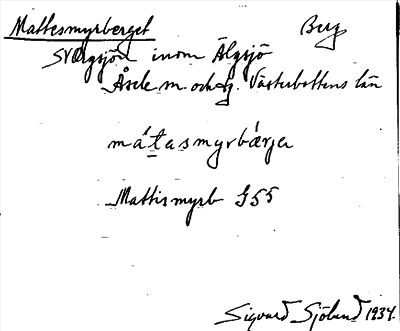 Mattesmyrberget Berg
Svärgsjön inom Älgsjö
Åsele m. och sg. Västerbottens län
mátasmyrbærja
Mattismyrb G55
Sigvard Sjölund 1934.